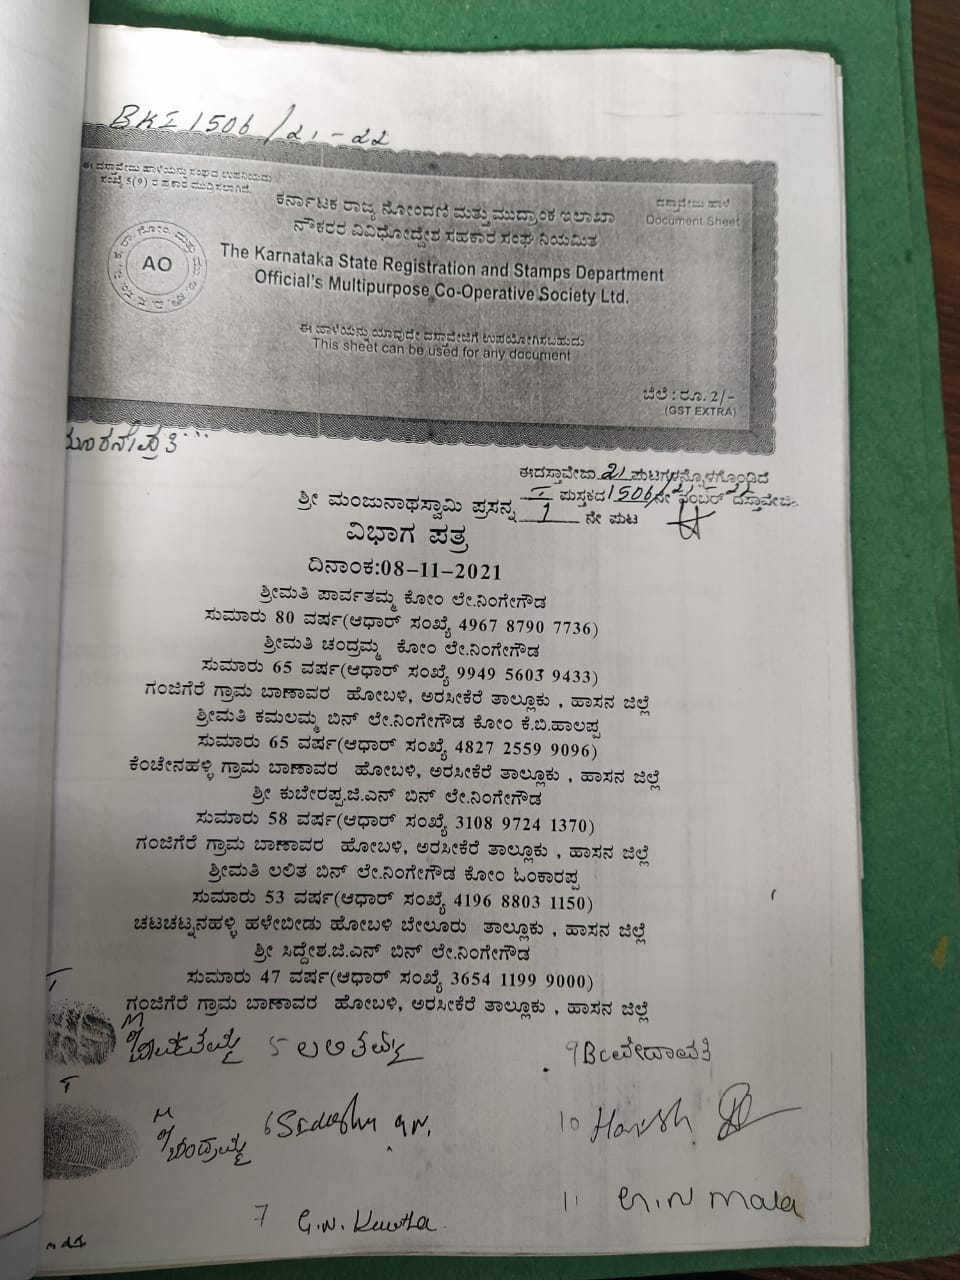 BKI 1506/21-22
ಈ ದಸ್ತಾವೇಜು ಹಾಳೆಯನ್ನು ಸಂಘದ ಉಪನಿಯಮ
ಸಂಖ್ಯೆ 5(9) ರ ಪ್ರಕಾರ ಮುದ್ರಿಸಲಾಗಿದೆ.
ಕರ್ನಾಟಕ ರಾಜ್ಯ ನೋಂದಣಿ ಮತ್ತು ಮುದ್ರಾಂಕ ಇಲಾಖಾ
ನೌಕರರ ವಿವಿಧೋದ್ದೇಶ ಸಹಕಾರ ಸಂಘ ನಿಯಮಿತ
ದಸ್ತಾವೇಜು ಹಾಳೆ
Document Sheet
AO
The Karnataka State Registration and Stamps Department
Official's Multipurpose Co-Operative Society Ltd.
ಈ ಹಾಳೆಯನ್ನು ಯಾವುದೇ ದಸ್ತಾವೇಜಿಗೆ ಉಪಯೋಗಿಸಬಹುದು
This sheet can be used for any document
ಬೆಲೆ : ರೂ. 2/-
(GST EXTRA)
ಈದಸ್ತಾವೇಜು 21 ಪುಟಗಳನ್ನೊಳಗೊಂಡಿದೆ
I ಪುಸ್ತಕದ 1506/21-22 ನೇ ನಂಬರ್ ದಸ್ತಾವೇಜಿನ
1 ನೇ ಪುಟ
ಶ್ರೀ ಮಂಜುನಾಥಸ್ವಾಮಿ ಪ್ರಸನ್ನ
ವಿಭಾಗ ಪತ್ರ
ದಿನಾಂಕ:08-11-2021
ಶ್ರೀಮತಿ ಪಾರ್ವತಮ್ಮ ಕೋಂ ಲೇ.ನಿಂಗೇಗೌಡ
ಸುಮಾರು 80 ವರ್ಷ(ಆಧಾರ್ ಸಂಖ್ಯೆ 4967 8790 7736)
ಶ್ರೀಮತಿ ಚಂದ್ರಮ್ಮ ಕೋಂ ಲೇ.ನಿಂಗೇಗೌಡ
ಸುಮಾರು 65 ವರ್ಷ(ಆಧಾರ್ ಸಂಖ್ಯೆ 9949 5603 9433)
ಗಂಜಿಗೆರೆ ಗ್ರಾಮ ಬಾಣಾವರ ಹೋಬಳಿ, ಅರಸೀಕೆರೆ ತಾಲ್ಲೂಕು , ಹಾಸನ ಜಿಲ್ಲೆ
ಶ್ರೀಮತಿ ಕಮಲಮ್ಮ ಬಿನ್ ಲೇ.ನಿಂಗೇಗೌಡ ಕೋಂ ಕೆ.ಬಿ.ಹಾಲಪ್ಪ
ಸುಮಾರು 65 ವರ್ಷ(ಆಧಾರ್ ಸಂಖ್ಯೆ 4827 2559 9096)
ಕೆಂಚೇನಹಳ್ಳಿ ಗ್ರಾಮ ಬಾಣಾವರ ಹೋಬಳಿ, ಅರಸೀಕೆರೆ ತಾಲ್ಲೂಕು , ಹಾಸನ ಜಿಲ್ಲೆ
ಶ್ರೀ ಕುಬೇರಪ್ಪ.ಜಿ.ಎನ್ ಬಿನ್ ಲೇ.ನಿಂಗೇಗೌಡ
ಸುಮಾರು 58 ವರ್ಷ(ಆಧಾರ್ ಸಂಖ್ಯೆ 3108 9724 1370)
ಗಂಜಿಗೆರೆ ಗ್ರಾಮ ಬಾಣಾವರ ಹೋಬಳಿ, ಅರಸೀಕೆರೆ ತಾಲ್ಲೂಕು , ಹಾಸನ ಜಿಲ್ಲೆ
ಶ್ರೀಮತಿ ಲಲಿತ ಬಿನ್ ಲೇ.ನಿಂಗೇಗೌಡ ಕೋಂ ಓಂಕಾರಪ್ಪ
ಸುಮಾರು 53 ವರ್ಷ(ಆಧಾರ್ ಸಂಖ್ಯೆ 4196 8803 1150)
ಚಟಚಟ್ನನಹಳ್ಳಿ ಹಳೇಬೀಡು ಹೋಬಳಿ ಬೇಲೂರು ತಾಲ್ಲೂಕು , ಹಾಸನ ಜಿಲ್ಲೆ
ಶ್ರೀ ಸಿದ್ದೇಶ.ಜಿ.ಎನ್ ಬಿನ್ ಲೇ.ನಿಂಗೇಗೌಡ
ಸುಮಾರು 47 ವರ್ಷ(ಆಧಾರ್ ಸಂಖ್ಯೆ 3654 1199 9000)
ಗಂಜಿಗೆರೆ ಗ್ರಾಮ ಬಾಣಾವರ ಹೋಬಳಿ, ಅರಸೀಕೆರೆ ತಾಲ್ಲೂಕು , ಹಾಸನ ಜಿಲ್ಲೆ
ಪಾರ್ವತಮ್ಮ 5 ಲಲಿತಮ್ಮ 9 BC ವೇದಾವತಿ
ಚಂದ್ರಮ್ಮ 6 Siddesha G.N. 10 Harish
7 G.N. 11 G.N Mala